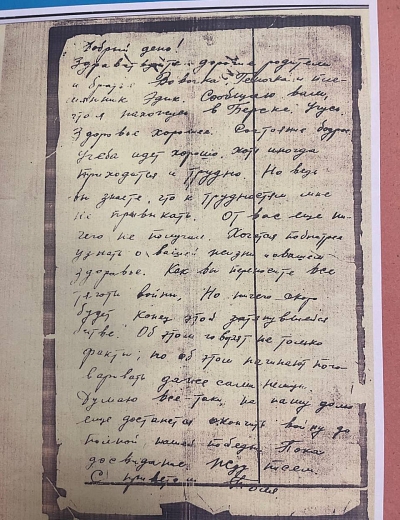 Добрый день!
Здравствуйте дорогие родители
и братья Вовочка, Геночка и пле-
мянник Эдик. Сообщаю вам,
что я нахожусь в Бердске. Учусь.
Здоровье хорошее. Состояние бодрое.
Учеба идет хорошо. Хотя иногда
приходится и трудно. Но ведь
вы знаете, что к трудностям мне
не привыкать. От вас еще ни-
чего не получал. Хочется побыстрее
узнать о вашей жизни о вашем
здоровье. Как вы переносите все
тяготы войны. Но ничего скоро
будет конец этой затянувшейся
битве. Об этом говорят не только
факты, но об этом начинают пого-
варивать даже сами немцы.
Думаю все таки, на нашу долю
еще достанется окончить войну до
полной нашей победы. Пока
досвидание. Жду писем.
С приветом Толя